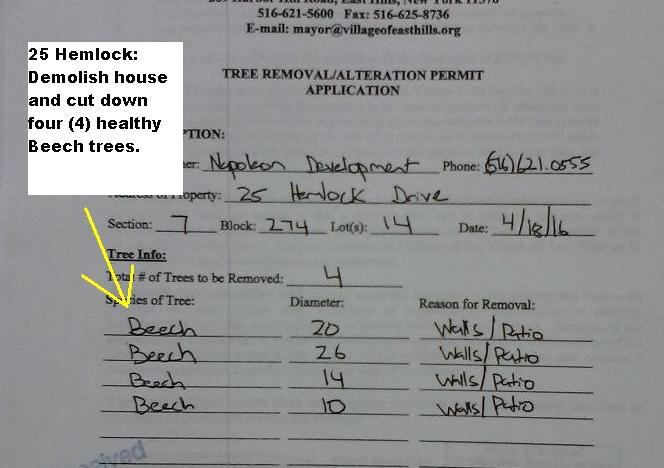 516-621-5600 Fax: 516-625-8736
E-mail: mayor@villageofeasthills.org
25 Hemlock:
Demolish house
and cut down
four (4) healthy
Beech trees.
TREE REMOVAL/ALTERATION PERMIT
APPLICATION
PTION:
ner: Napoleon Development Phone: (516)621.0555
of Property: 25 Hemlock Drive
Section: 7 Block: 274 Lot(s): 14 Date: 4/18/16
Tree Info:
Total # of Trees to be Removed: 4
Species of Tree: Diameter: Reason for Removal:
Beech 20 Walls/Patio
Beech 26 Walls/Patio
Beech 14 Walls/Patio
Beech 10 Walls/Patio